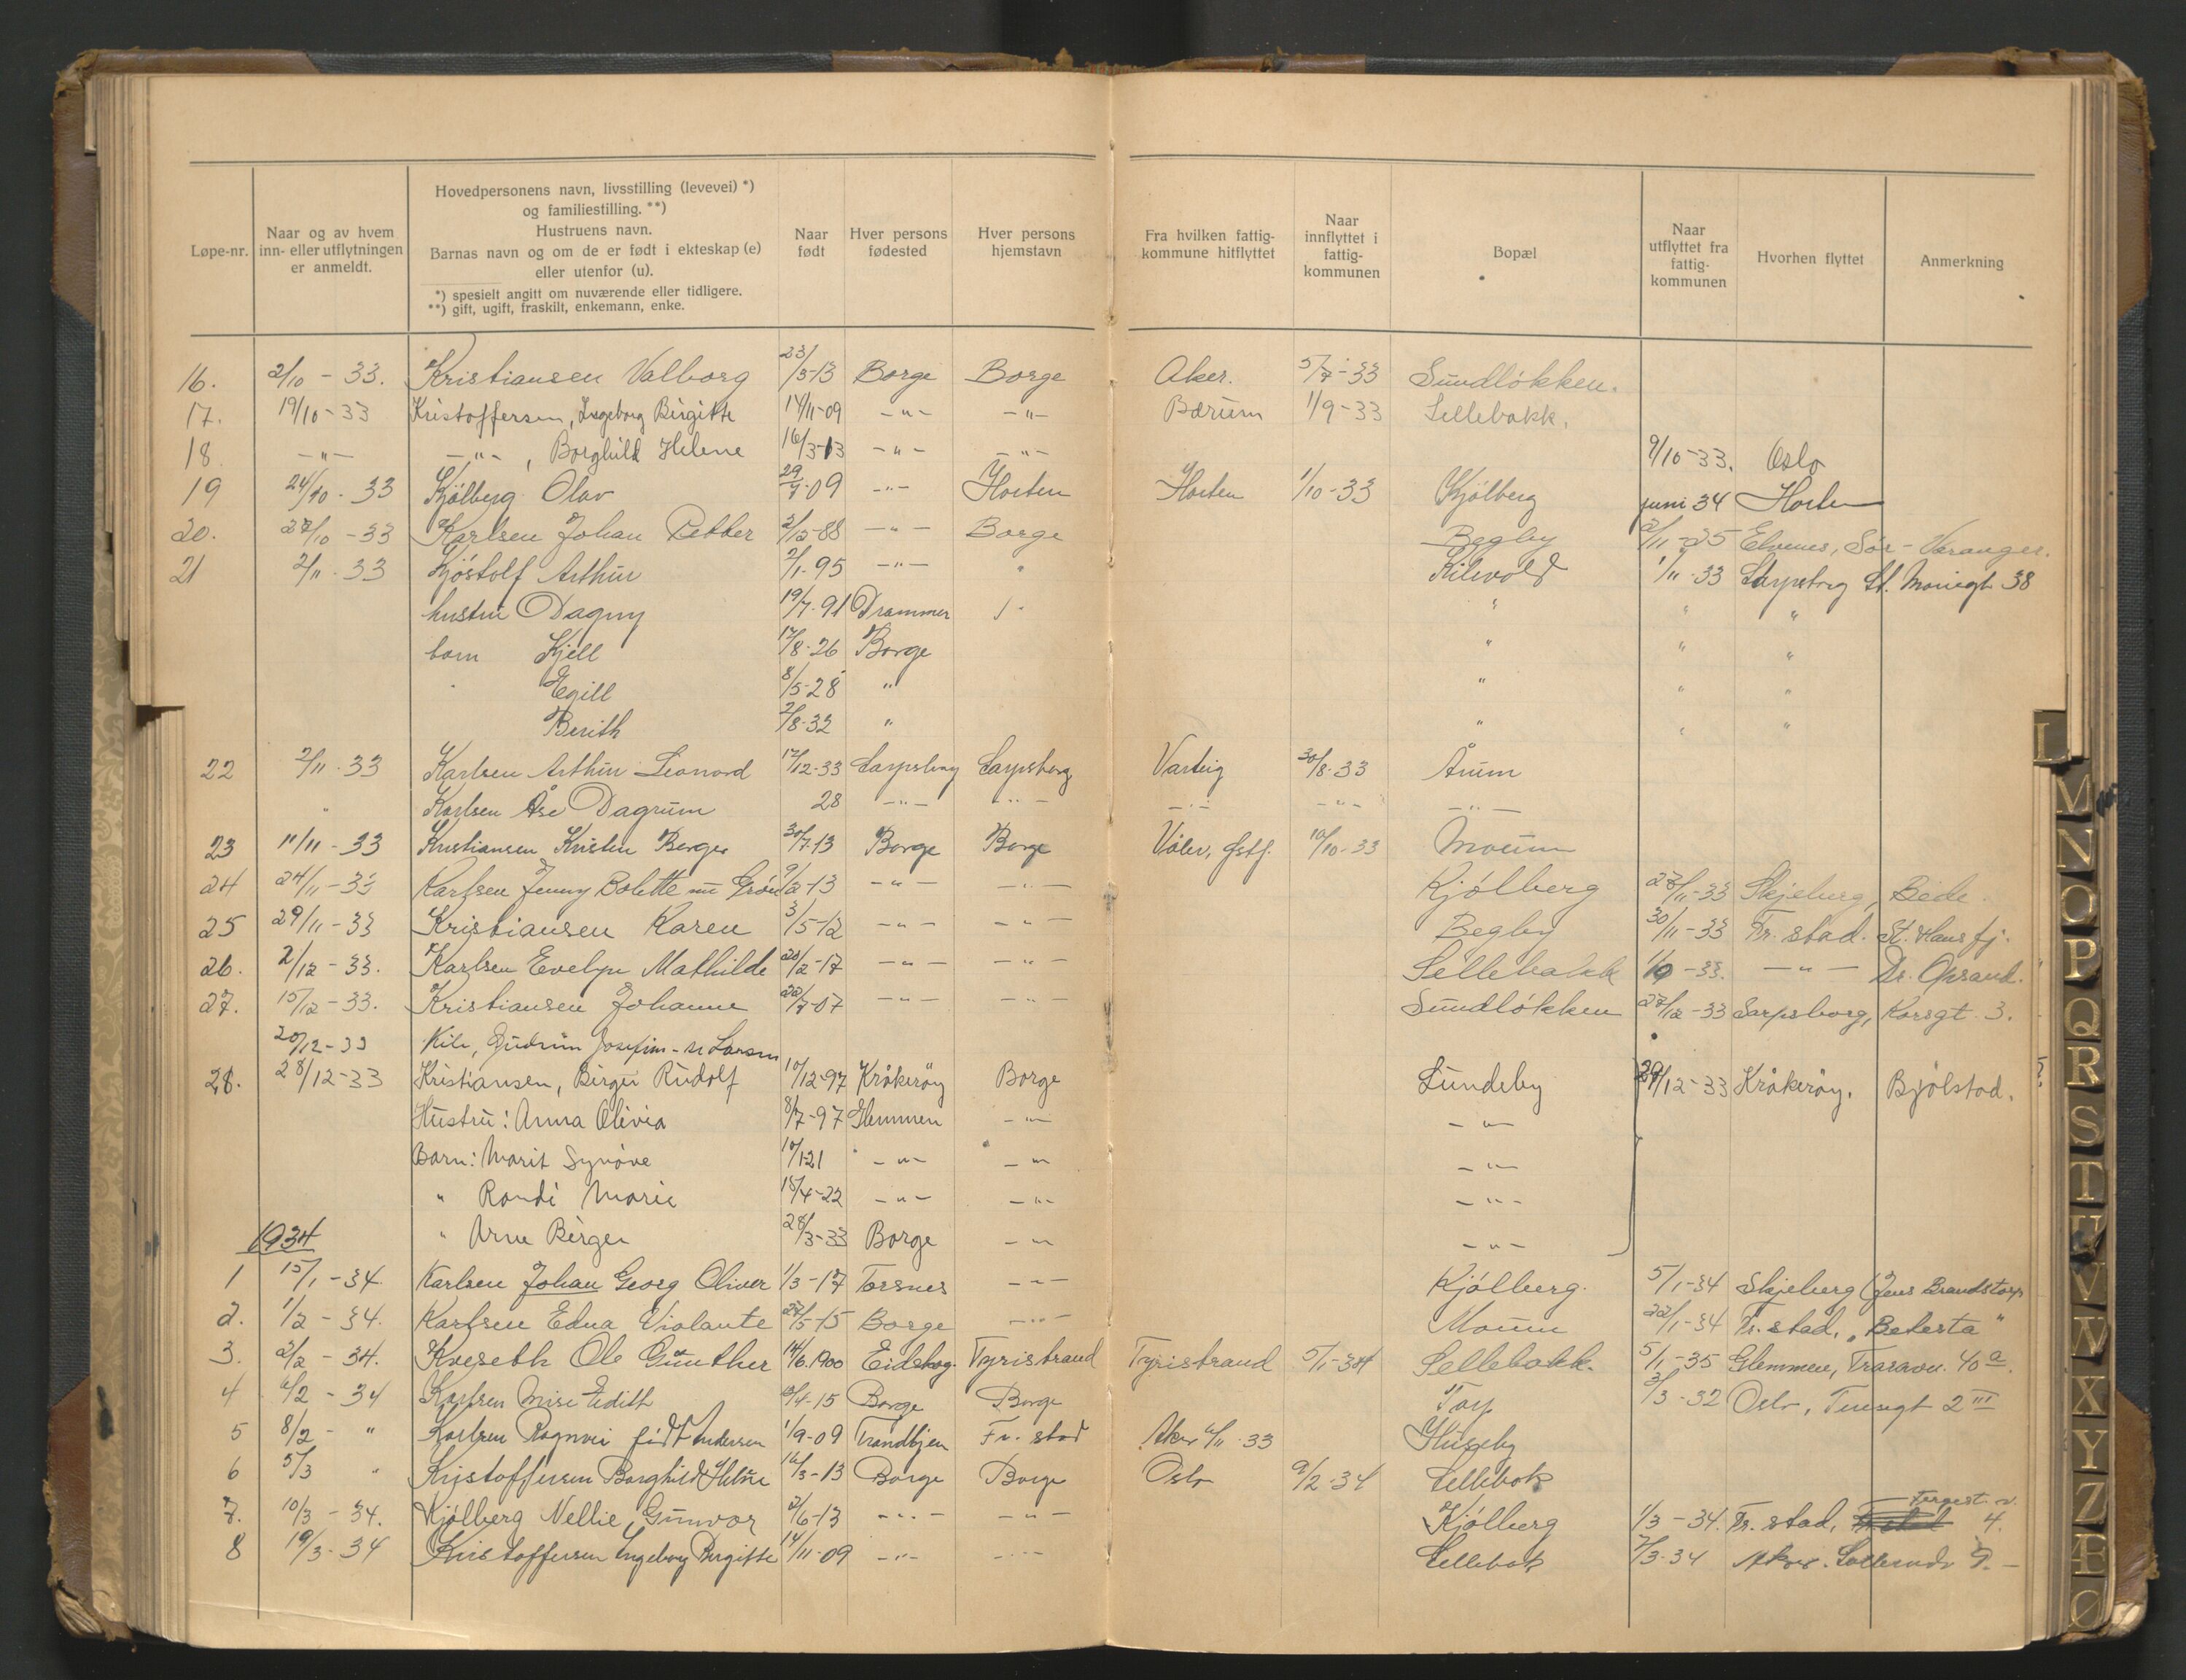 Løpe-nr.
Naar og av hvem
inn- eller utflytningen
er anmeldt.
Hovedpersonens navn, livsstilling (levevei) *)
og familiestilling. **)
Hustruens navn.
Barnas navn og om de er født i ekteskap (e)
eller utenfor (u).
*) spesielt angitt om nuværende eller tidligere.
**) gift, ugift, fraskilt, enkemann, enke.
Naar
født
Hver persons
fødested
Hver persons
hjemstavn
Fra hvilken fattig-
kommune hitflyttet
Naar
innflyttet i
fattig-
kommunen
Bopæl
Naar
utflyttet fra
fattig-
kommunen
Hvorhen flyttet
Anmerkning
16. 2/10 - 33. Kristiansen Valborg 23/3-13 Borge Borge Aker. 5/7-33 Sundløkken.
17. 19/10-33 Kristoffersen, Ingeborg Birgitte 14/11-09 -"- -"- Bærum 1/9-33 Sellebakk.
18. -"- -"-, Borghild Helene 16/3-13 -"- -"- 9/10-33. Oslo
19 24/10. 33 Kjølberg Olav 29/7-09 -"- Horten Horten 1/10-33 Kjølberg juni 34 Horten
20. 27/10-33 Karlsen Johan Petter 2/12-88 -"- Borge Begby 2/11-35 Elvenes, Sør-Varanger.
21 2/11. 33 Kjøstolf Arthur 2/1-95 -"- " Kilevold 1/11-33 Sarpsborg St. Mariegt 38
hustru Dagny 19/7-91 Drammen " " " "
barn Kjell 17/8-26 Borge " " "
Egill 8/5-28 " " " "
Berith 2/8-32 " " " "
22 2/11. 33 Karlsen Arthur Leonard 17/12-33 Sarpsborg Sarpsborg Varteig 30/8-33 Årum
" Karlsen Åse Dagrun 28 -"- -"- -"- -"- -"-
23 11/11-33 Kristiansen Kristen Berger 30/7-13 Borge Borge Våler, Østf. 10/10-33 Moum
24 24/11-33 Karlsen Jenny Bolette 9/2-13 -"- -"- Kjølberg 28/11-33 Skjeberg,
25 29/11-33 Kristiansen Karen 3/5-12 -"- -"- Begby 30/11-33 Fr.stad. St. Hansfj.
26. 2/12-33. Karlsen Evelyn Mathilde 20/2-17 -"- -"- Sellebakk -33. -"- Dr. Opsand.
27. 15/12-33. Kristiansen Johanne 22/7-07 -"- -"- Sundløkken 27/12-33 Sarpsborg, Korsgt. 3.
20/12-33 Kile, Gudrun Josefine Larsen
28. 28/12-33 Kristiansen, Birger Rudolf 10/12-97 Kråkerøy Borge Lundeby 29/12-33 Kråkerøy. Bjølstad.
Hustru: Anna Olivia 8/7-97 Glemmen -"- -"-
Barn: Marit Synøve 10/1-21 -"- -"- -"-
" Randi Marie 15/4-22 -"- -"- -"-
" Arne Birger 28/3-33 Borge -"- -"-
1934
1 15/1-34. Karlsen Johan Georg Oliver 1/3-17 Torsnes -"- Kjølberg. 5/1-34 Skjeberg (Jens Brandstorp
2. 1/2-34. Karlsen Edna Violante 27/5-15 Borge -"- Moum 22/1-34 Fr.stad, "Betesta"
3. 2/2-34. Kveseth Ole Günther 14/6.1900 Eidskog. Tyristrand Tyristrand 5/1-34 Sellebakk. 5/1-35 Glemmen, Traraveien 40 a.
4 6/2-34 Karlsen Edith /4-15 Borge Borge Torp /3-32 Oslo, 2 III
5 8/2- " Karlsen Ragnvi født Andersen 1/9-09 Trondhjem Fr.stad Aker 6/11-33 Huseby
6 5/3 " Kristoffersen Borghild Helene 16/3-13 Borge Borge Oslo 9/2-34 Sellebak
7. 10/3-34. Kjølberg Nellie Gunvor 2/6-13 -"- -"- Kjølberg 1/3-34. Fr.stad, Fergest. v. 4.
8 19/3-34 Kristoffersen Ingeborg Birgitte 14/11-09 -"- -"- Sellebak 7/3-34 Aker.
L
M
N
O
P
Q
R
S
T
U
V
W
X
Y
Z
Æ
Ø